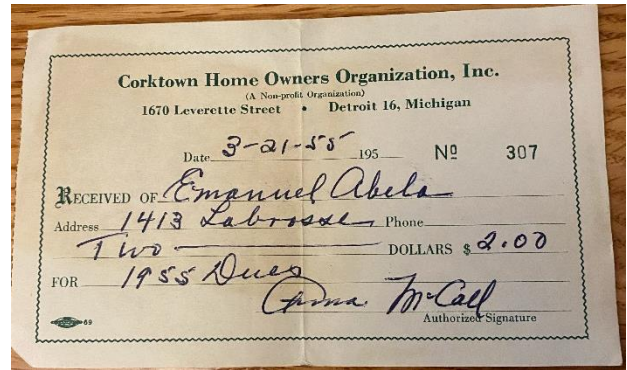 Corktown Home Owners Organization, Inc.
(A Non-profit Organization)
1670 Leverette Street • Detroit 16, Michigan
Date 3-21-55 195 Nº 307
RECEIVED OF Emanuel Abela
Address 1413 Labrosse Phone
Two DOLLARS $ 2.00
FOR 1955 Dues
Anna McCall
Authorized Signature
89